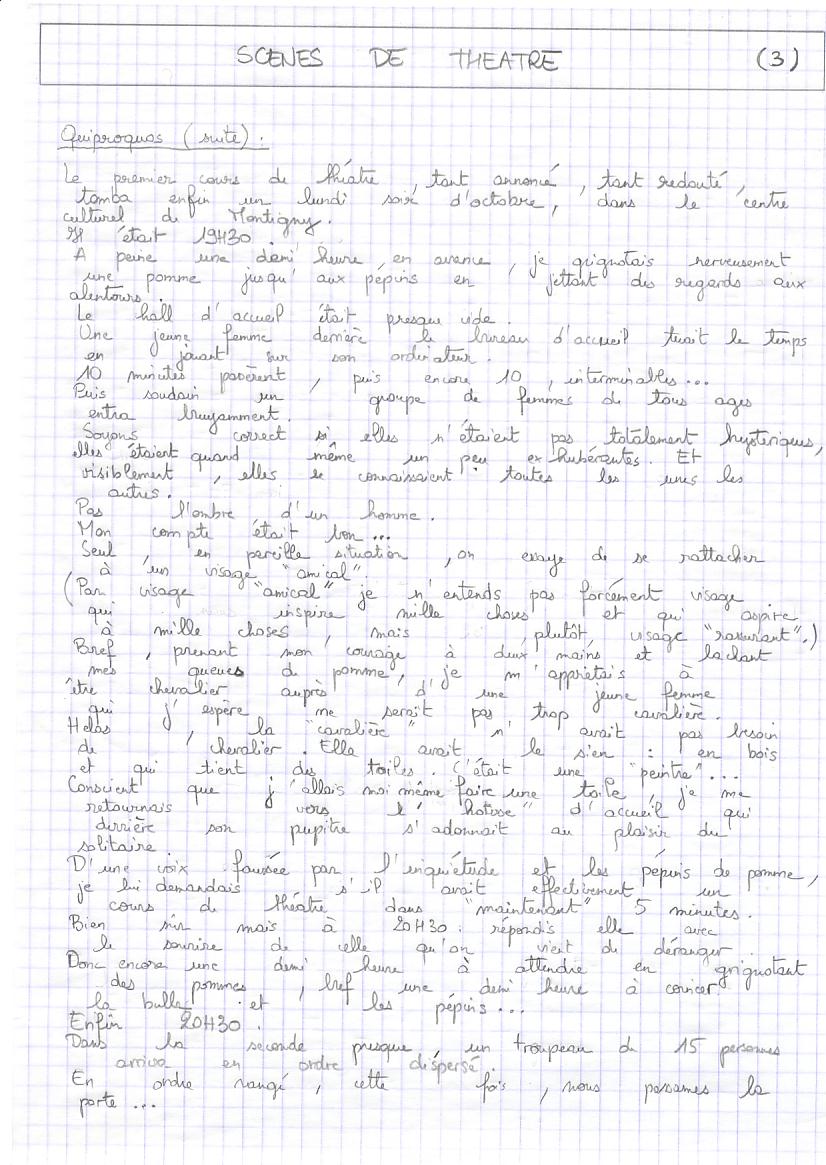 SCENES DE THEATRE (3)
Quiproquos (suite) :
Le premier cours de théatre, tant annoncé, tant redouté,
tomba enfin un lundi soir d'octobre, dans le centre
culturel de Montigny.
Il était 19H30.
A peine une demi heure, en avance, je grignotais nerveusement
une pomme jusqu'aux pépins en jettant des regards aux
alentours.
Le hall d'accueil était presque vide.
Une jeune femme derrière le bureau d'accueil tuait le temps
en jouant sur son ordinateur.
10 minutes passèrent, puis encore 10, interminables...
Puis soudain un groupe de femmes de tous ages
entra bruyamment.
Soyons correct si elles n'étaient pas totalement hysteriques,
elles étaient quand même un peu exhubérantes. Et
visiblement, elles se connaissaient toutes les unes les
autres.
Pas l'ombre d'un homme.
Mon compte était bon...
Seul, en pareille situation, on essaye de se rattacher
à un visage "amical".
(Par visage "amical" je n'entends pas forcément visage
qui inspire mille choses et qui aspire
à mille choses, mais, plutôt, visage "rassurant".)
Bref, prenant mon courage à deux mains et lachant
mes queues de pomme, je m'apprêtais à
être chevalier auprès d'une jeune femme
qui j'espère me serait pas trop cavalière.
Helas, la "cavalière" n'avait pas besoin
de chevalier. Elle avait le sien : en bois
et qui tient des toiles. C'était une "peintre"...
Conscient que j'allais moi même faire une toile, je me
retournais vers l'"hotesse" d'accueil qui
dirrière son pupitre s'adonnait au plaisir du
solitaire.
D'une voix faussée par l'inquiétude et les pépins de pomme,
je lui demandais s'il avait effectivement un
cours de théatre dans "maintenant" 5 minutes.
Bien sûr mais à 20H30 répondis elle avec
le sourire de celle qu'on vient de déranger.
Donc encore une demi heure à attendre en grignotant
des pommes, bref une demi heure à coincer
la bulle et les pépins...
Enfin 20H30.
Dans la seconde presque, un troupeau de 15 personnes
arriva en ordre dispersé.
En ordre rangé, cette fois, nous passames la
porte...